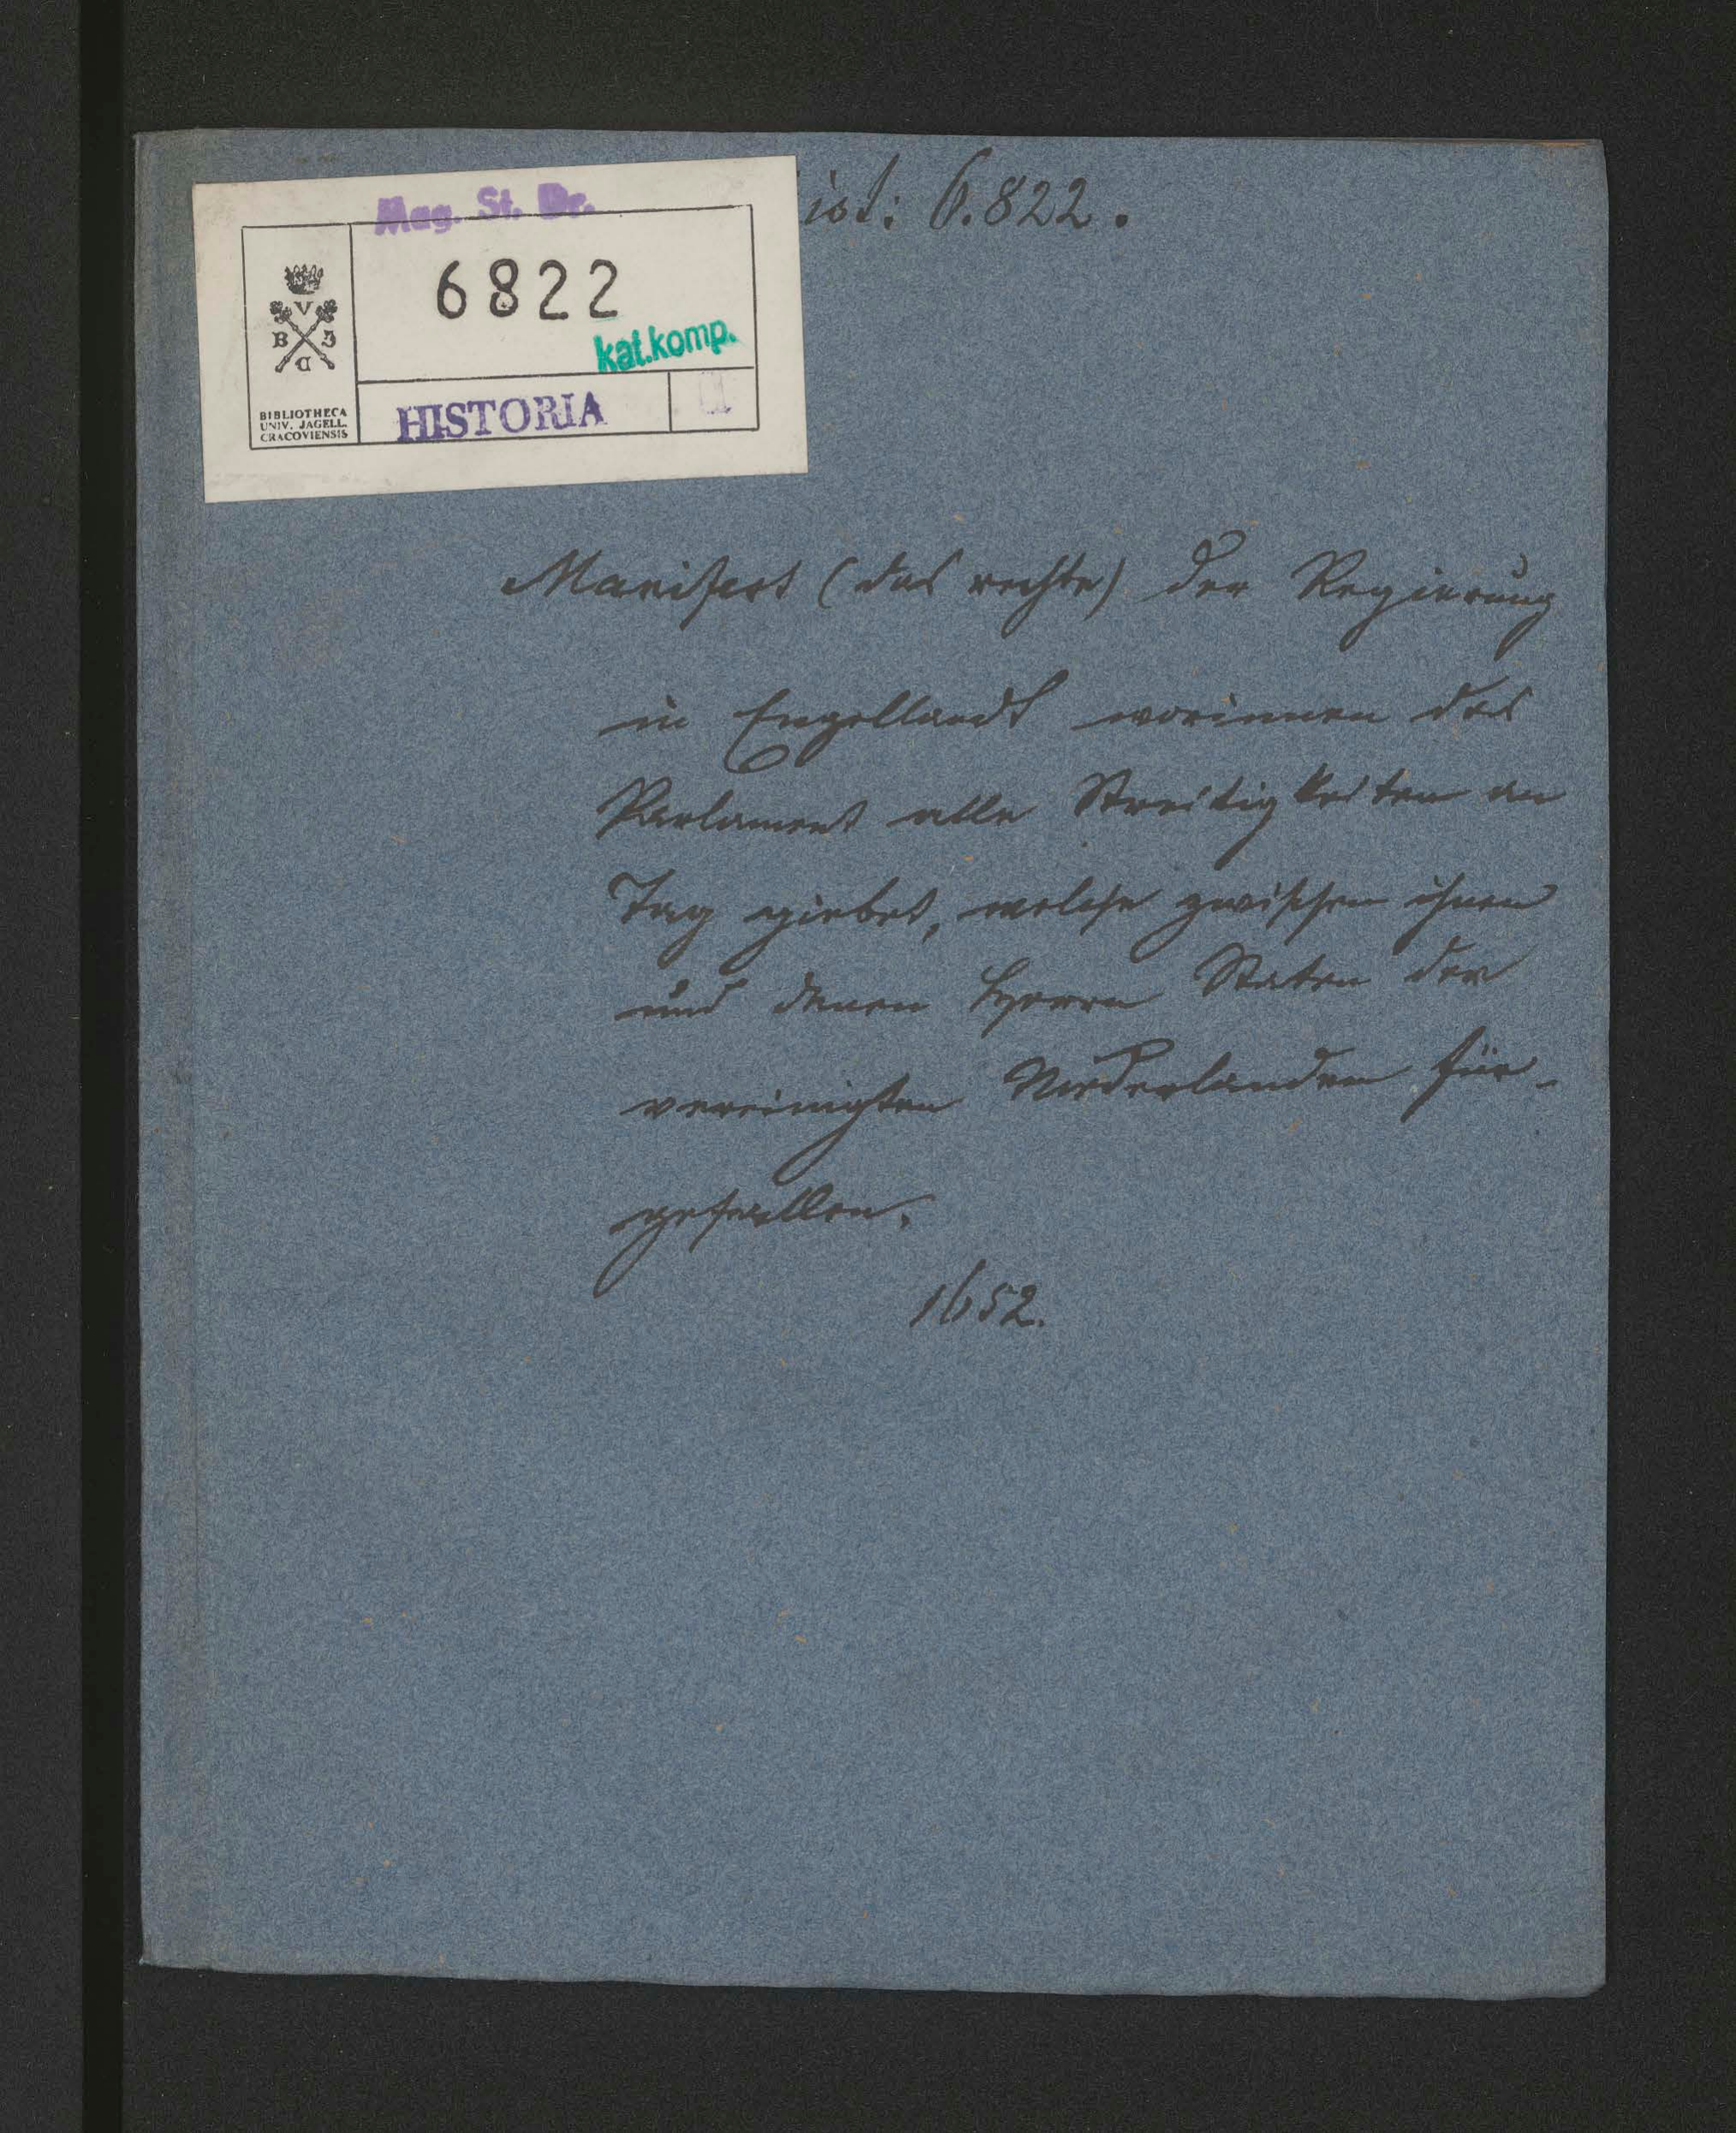 Mag. St. Dr.
ist: 6.822.
6822
kat.komp.
V
B J
C
BIBLIOTHECA
UNIV. JAGELL.
CRACOVIENSIS
HISTORIA
II
Manifest (das rechte) der Regierung
in Engellandt worinnen das
Parlament alle Streitigkeiten an
Tag giebet, welche zwischen ihnen
und denen Herrn Staten der
vereinigten Niederlanden für-
gefallen.
1652.